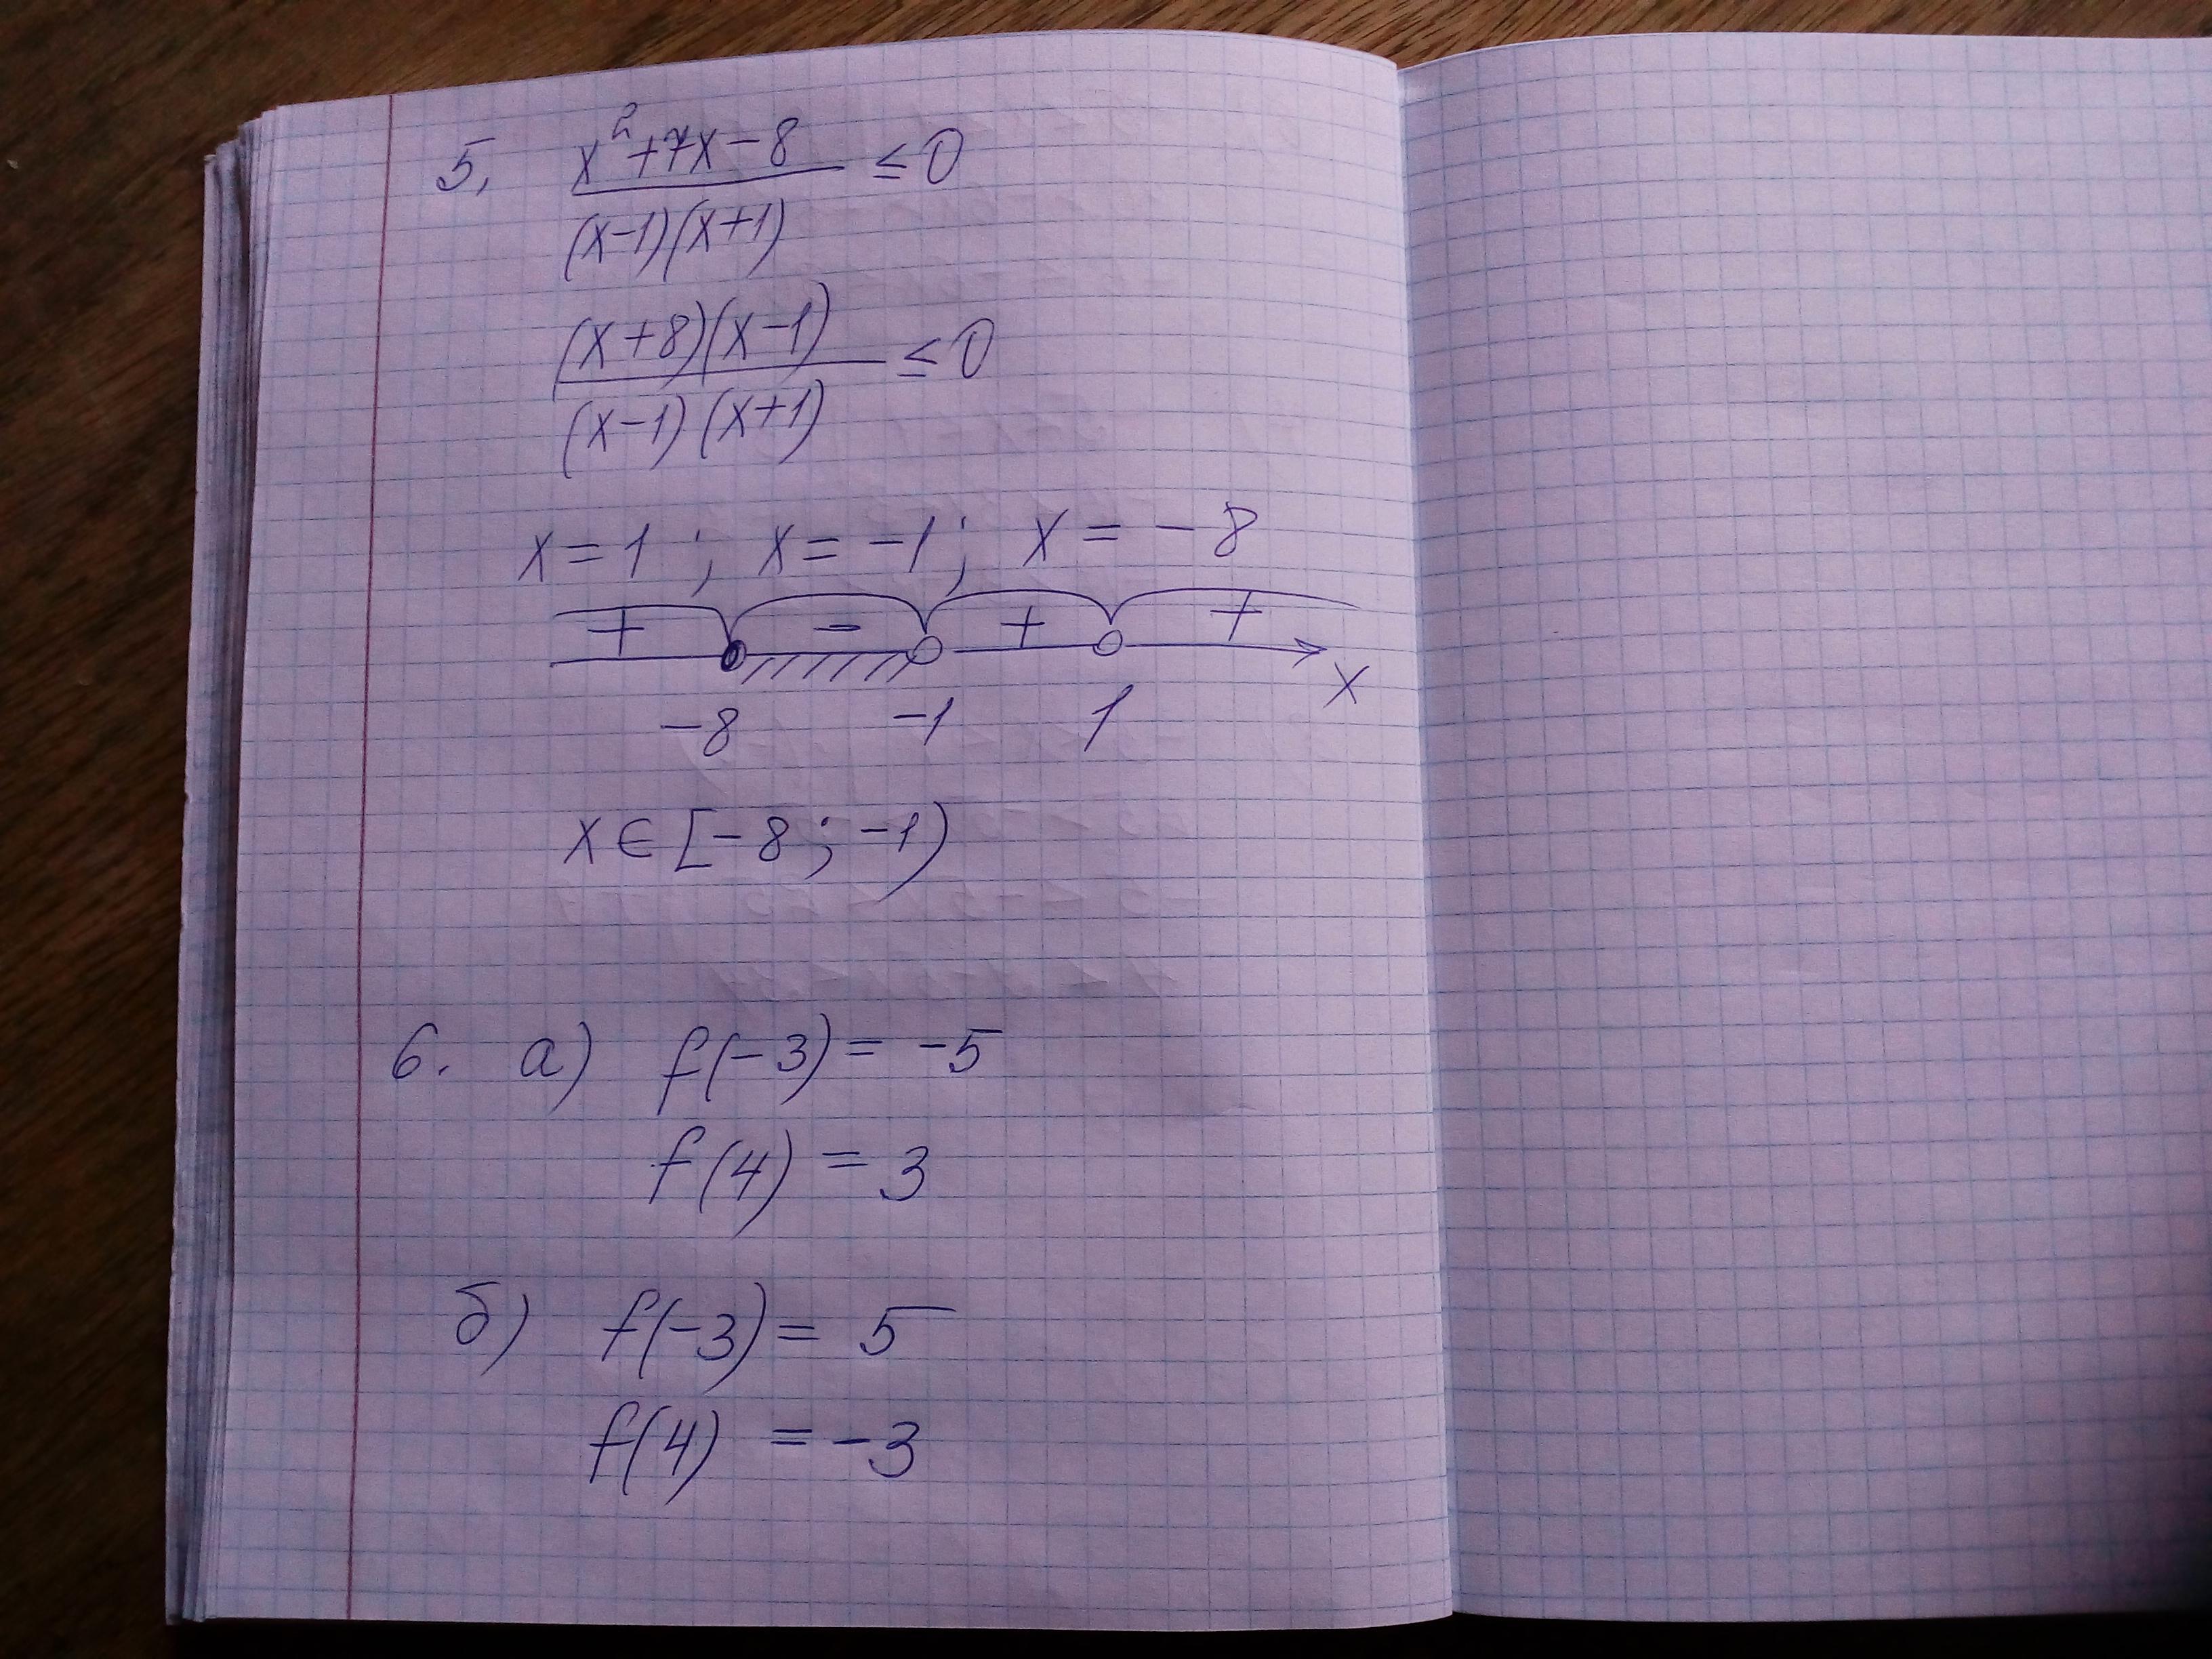 5. (x²+7x-8)/((x-1)(x+1)) ≤ 0
((x+8)(x-1))/((x-1)(x+1)) ≤ 0
x=1; x=-1; x=-8
+ - + +
-8 -1 1 x
x∈[-8;-1)
6. а) f(-3)= -5
f(4) = 3
б) f(-3)= 5
f(4) = -3